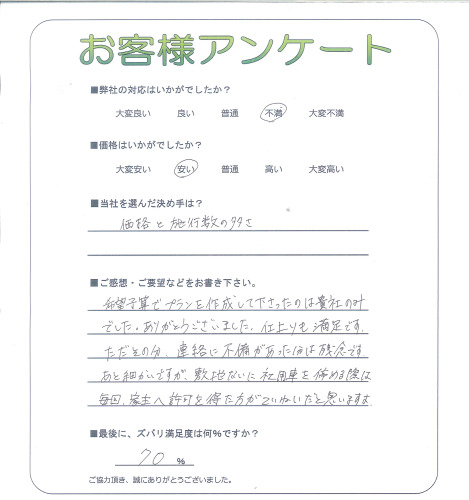 お客様アンケート
■弊社の対応はいかがでしたか？
大変良い 良い 普通 不満 大変不満
■価格はいかがでしたか？
大変安い 安い 普通 高い 大変高い
■当社を選んだ決め手は？
価格と施行数の多さ
■ご感想・ご要望などをお書き下さい。
希望予算でプランを作成して下さったのは貴社のみ
でした。ありがとうございました。仕上りも満足です。
ただその分、連絡に不備があった分は残念です
あと細かいですが、敷地ないに社用車を停める際は
毎回、家主へ許可を得た方がていねいだと思いますよ
■最後に、ズバリ満足度は何％ですか？
70 ％
ご協力頂き、誠にありがとうございました。